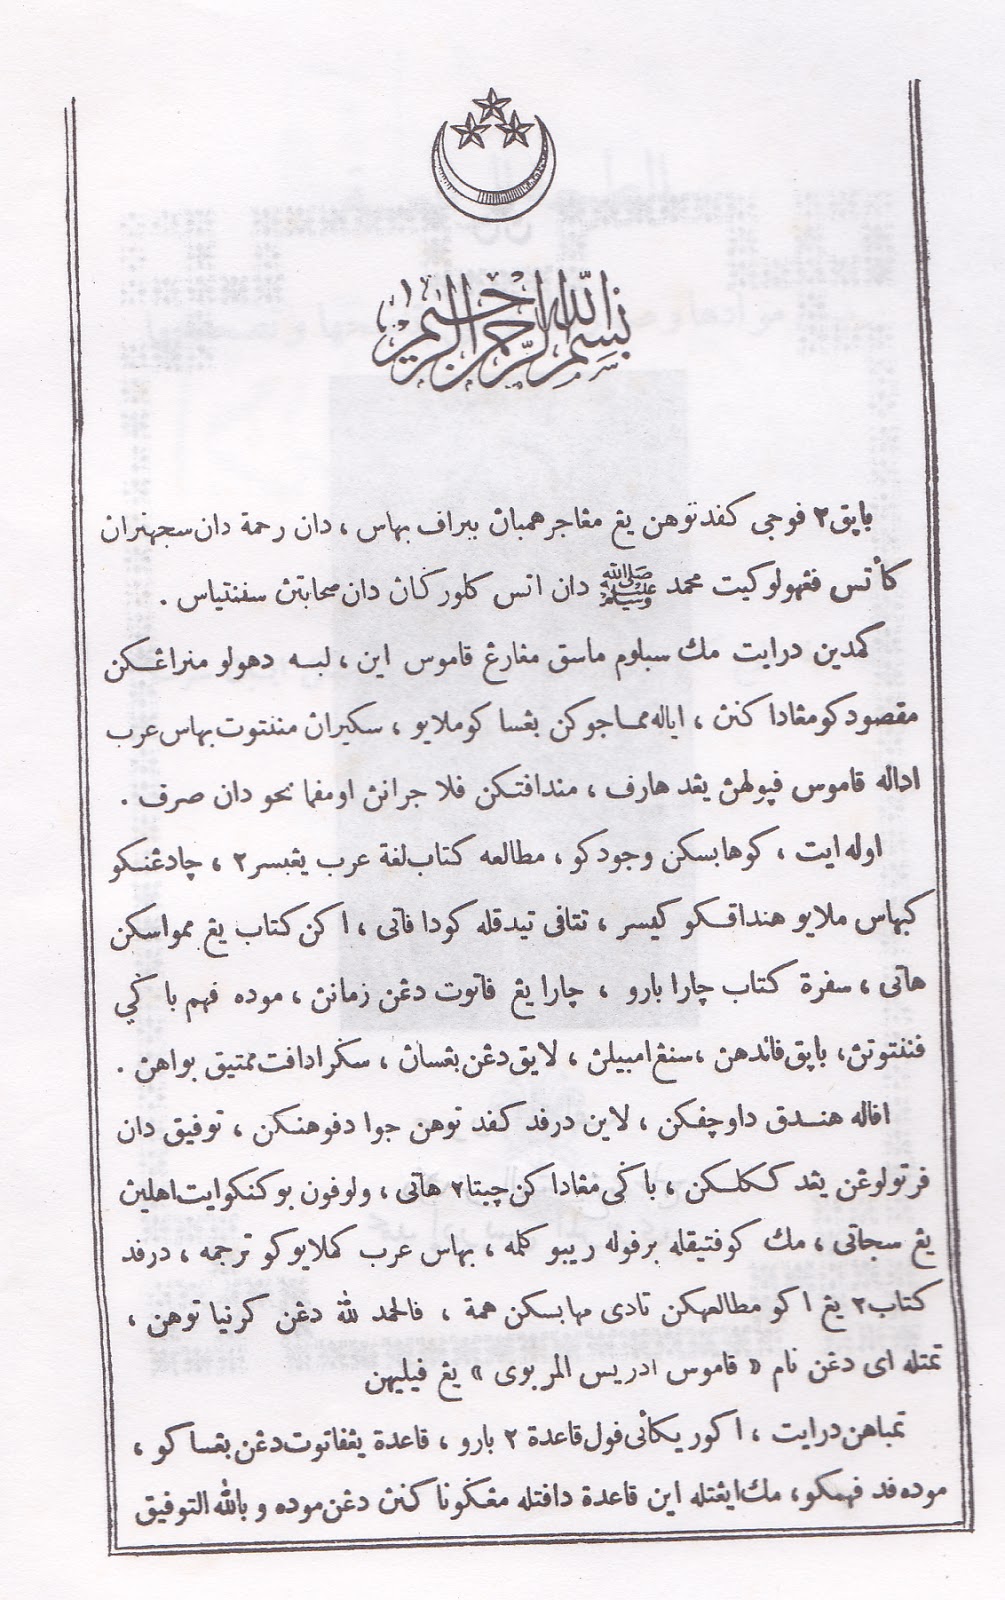 بسم الله الرحمن الرحيم
باپق٢ فوجي كفد توهن يڠ مڠاجر همبان ببراف بهاس ، دان رحمة دان سجهتران
كأتس فڠهولو كيت محمد ﷺ دان اتس كلورݢان دان صحابتن سفنتياس .
كمدين درايت مك سبلوم ماسق مڠارڠ قاموس اين ، لبه دهولو منراڠكن
مقصود كو مڠادا كنن ، اياله مماجوكن بڠسا كو ملايو ، سكيران مننتوت بهاس عرب
اداله قاموس فپولهن يڠد هارف ، مندافتكن فلاجرانن اومفما نحو دان صرف .
اوله ايت ، كوهابسكن وجود كو ، مطالعه كتاب لغة عرب يڠبسر٢ ، چادڠنكو
كبهاس ملايو هنداقكو كيسر ، تتافي تيدقله كودافاتي ، اكن كتاب يڠ ممواسكن
هاتي ، سفرة كتاب چارا بارو ، چارا يڠ فاتوت دڠن زمانن ، موده فهم باݢي
فننتوتن ، باپق فائدهن ، سنڠ امبيلن ، لايق دڠن بڠسان ، سݢرا دافت ممتيق بواهن .
افاله هندق داوچفكن ، لاين درفد كفد توهن جوا دفوهنكن ، توفيق دان
فرتولوڠن يڠد ككلسكن ، باݢي مڠاداكن چيتا٢ هاتي ، ولوفون بوكنكو ايت اهلين
يڠ سجاتي ، مك كوفتيقله برفوله ريبو كلمه ، بهاس عرب كملايو كو ترجمه ، درفد
كتاب٢ يڠ اكو مطالعهكن تادي مهابسكن همة ، فالحمد لله دڠن كرنيا توهن ،
تمتله اي دڠن نام « قاموس ادريس المربوي » يڠ فيليهن
تمباهن درايت ، اكو ريكائي فول قاعدة ٢ بارو ، قاعدة يڠفاتوت دڠن بڠسا كو ،
موده فد فهمكو ، مك ايڠتله اين قاعدة دافتله مڠݢونا كنن دڠن موده و بالله التوفيق